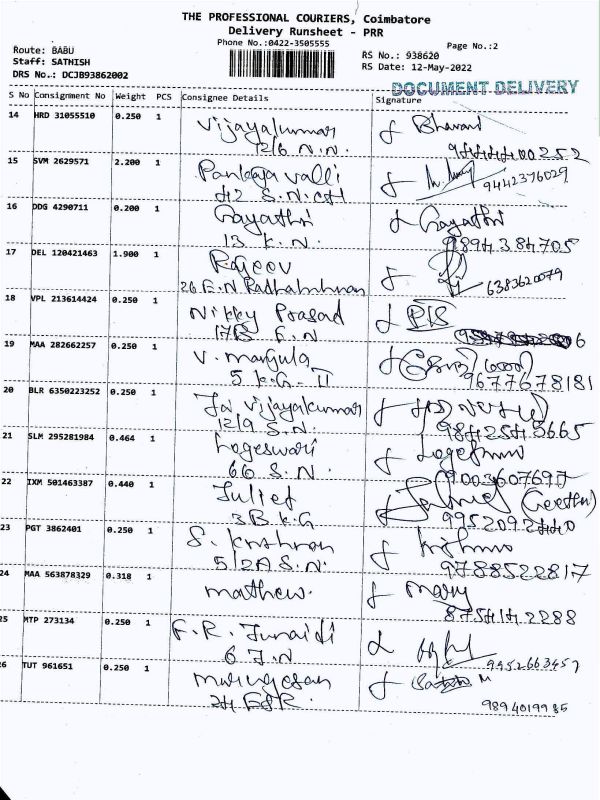 THE PROFESSIONAL COURIERS, Coimbatore
Delivery Runsheet - PRR
Phone No.:0422-3505555
Page No.:2
Route: BABU
Staff: SATHISH
DRS No.: DCJB93862002
RS No.: 938620
RS Date: 12-May-2022
DOCUMENT DELIVERY
S No Consignment No Weight PCS Consignee Details Signature
14 HRD 31055510 0.250 1 Vijayakumar
12/6 N.N.
15 SVM 2629571 2.200 1 Pankaja valli
42 S.N. 9442376029
16 DDG 4290711 0.200 1 Gayathri Gayathri
13 K.N. 9894384705
17 DEL 120421463 1.900 1 Rajeev
26 E.N Radhakrishnan 6383620079
18 VPL 213614424 0.250 1 Nikky Prasad
17B E.N
19 MAA 282662257 0.250 1 V. manjula
5 K.G-II 9677678181
20 BLR 6350223252 0.250 1 Jai vijayakumar
12/9 S.N. 9842545665
21 SLM 295281984 0.464 1 Logeswari
66 S.N. 9003607697
22 IXM 501463387 0.440 1 Juliet (Geetha)
3B K.G 9952092440
23 PGT 3862401 0.250 1 S. Krishnan
5/2A S.N. 9788522817
24 MAA 563878329 0.318 1 mathew. mary
8754142288
25 MTP 273134 0.250 1 F.R. Junaidi
6 J.N 9952663457
26 TUT 961651 0.250 1 murugesan
24 ESR. 9894019935